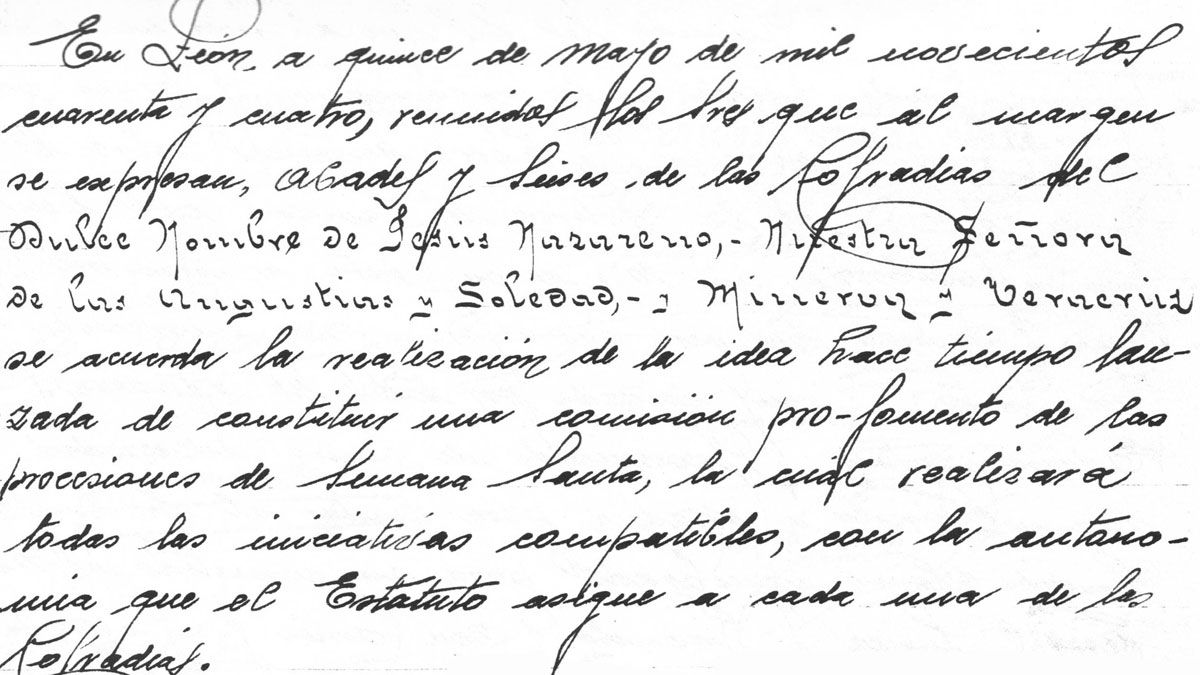 En León, a quince de mayo de mil novecientos
cuarenta y cuatro, reunidos los sres que al margen
se expresan, Abades y Seises de las Cofradias del
Dulce Nombre de Jesús Nazareno,- Nuestra Señora
de las Angustias y Soledad,- y Minerva y Veracruz
se acuerda la realización de la idea hace tiempo lan-
zada de constituir una comisión pro-fomento de las
procesiones de Semana Santa, la cuál realizará
todas las iniciativas compatibles, con la autono-
mia que el Estatuto asigue a cada una de las
Cofradias.